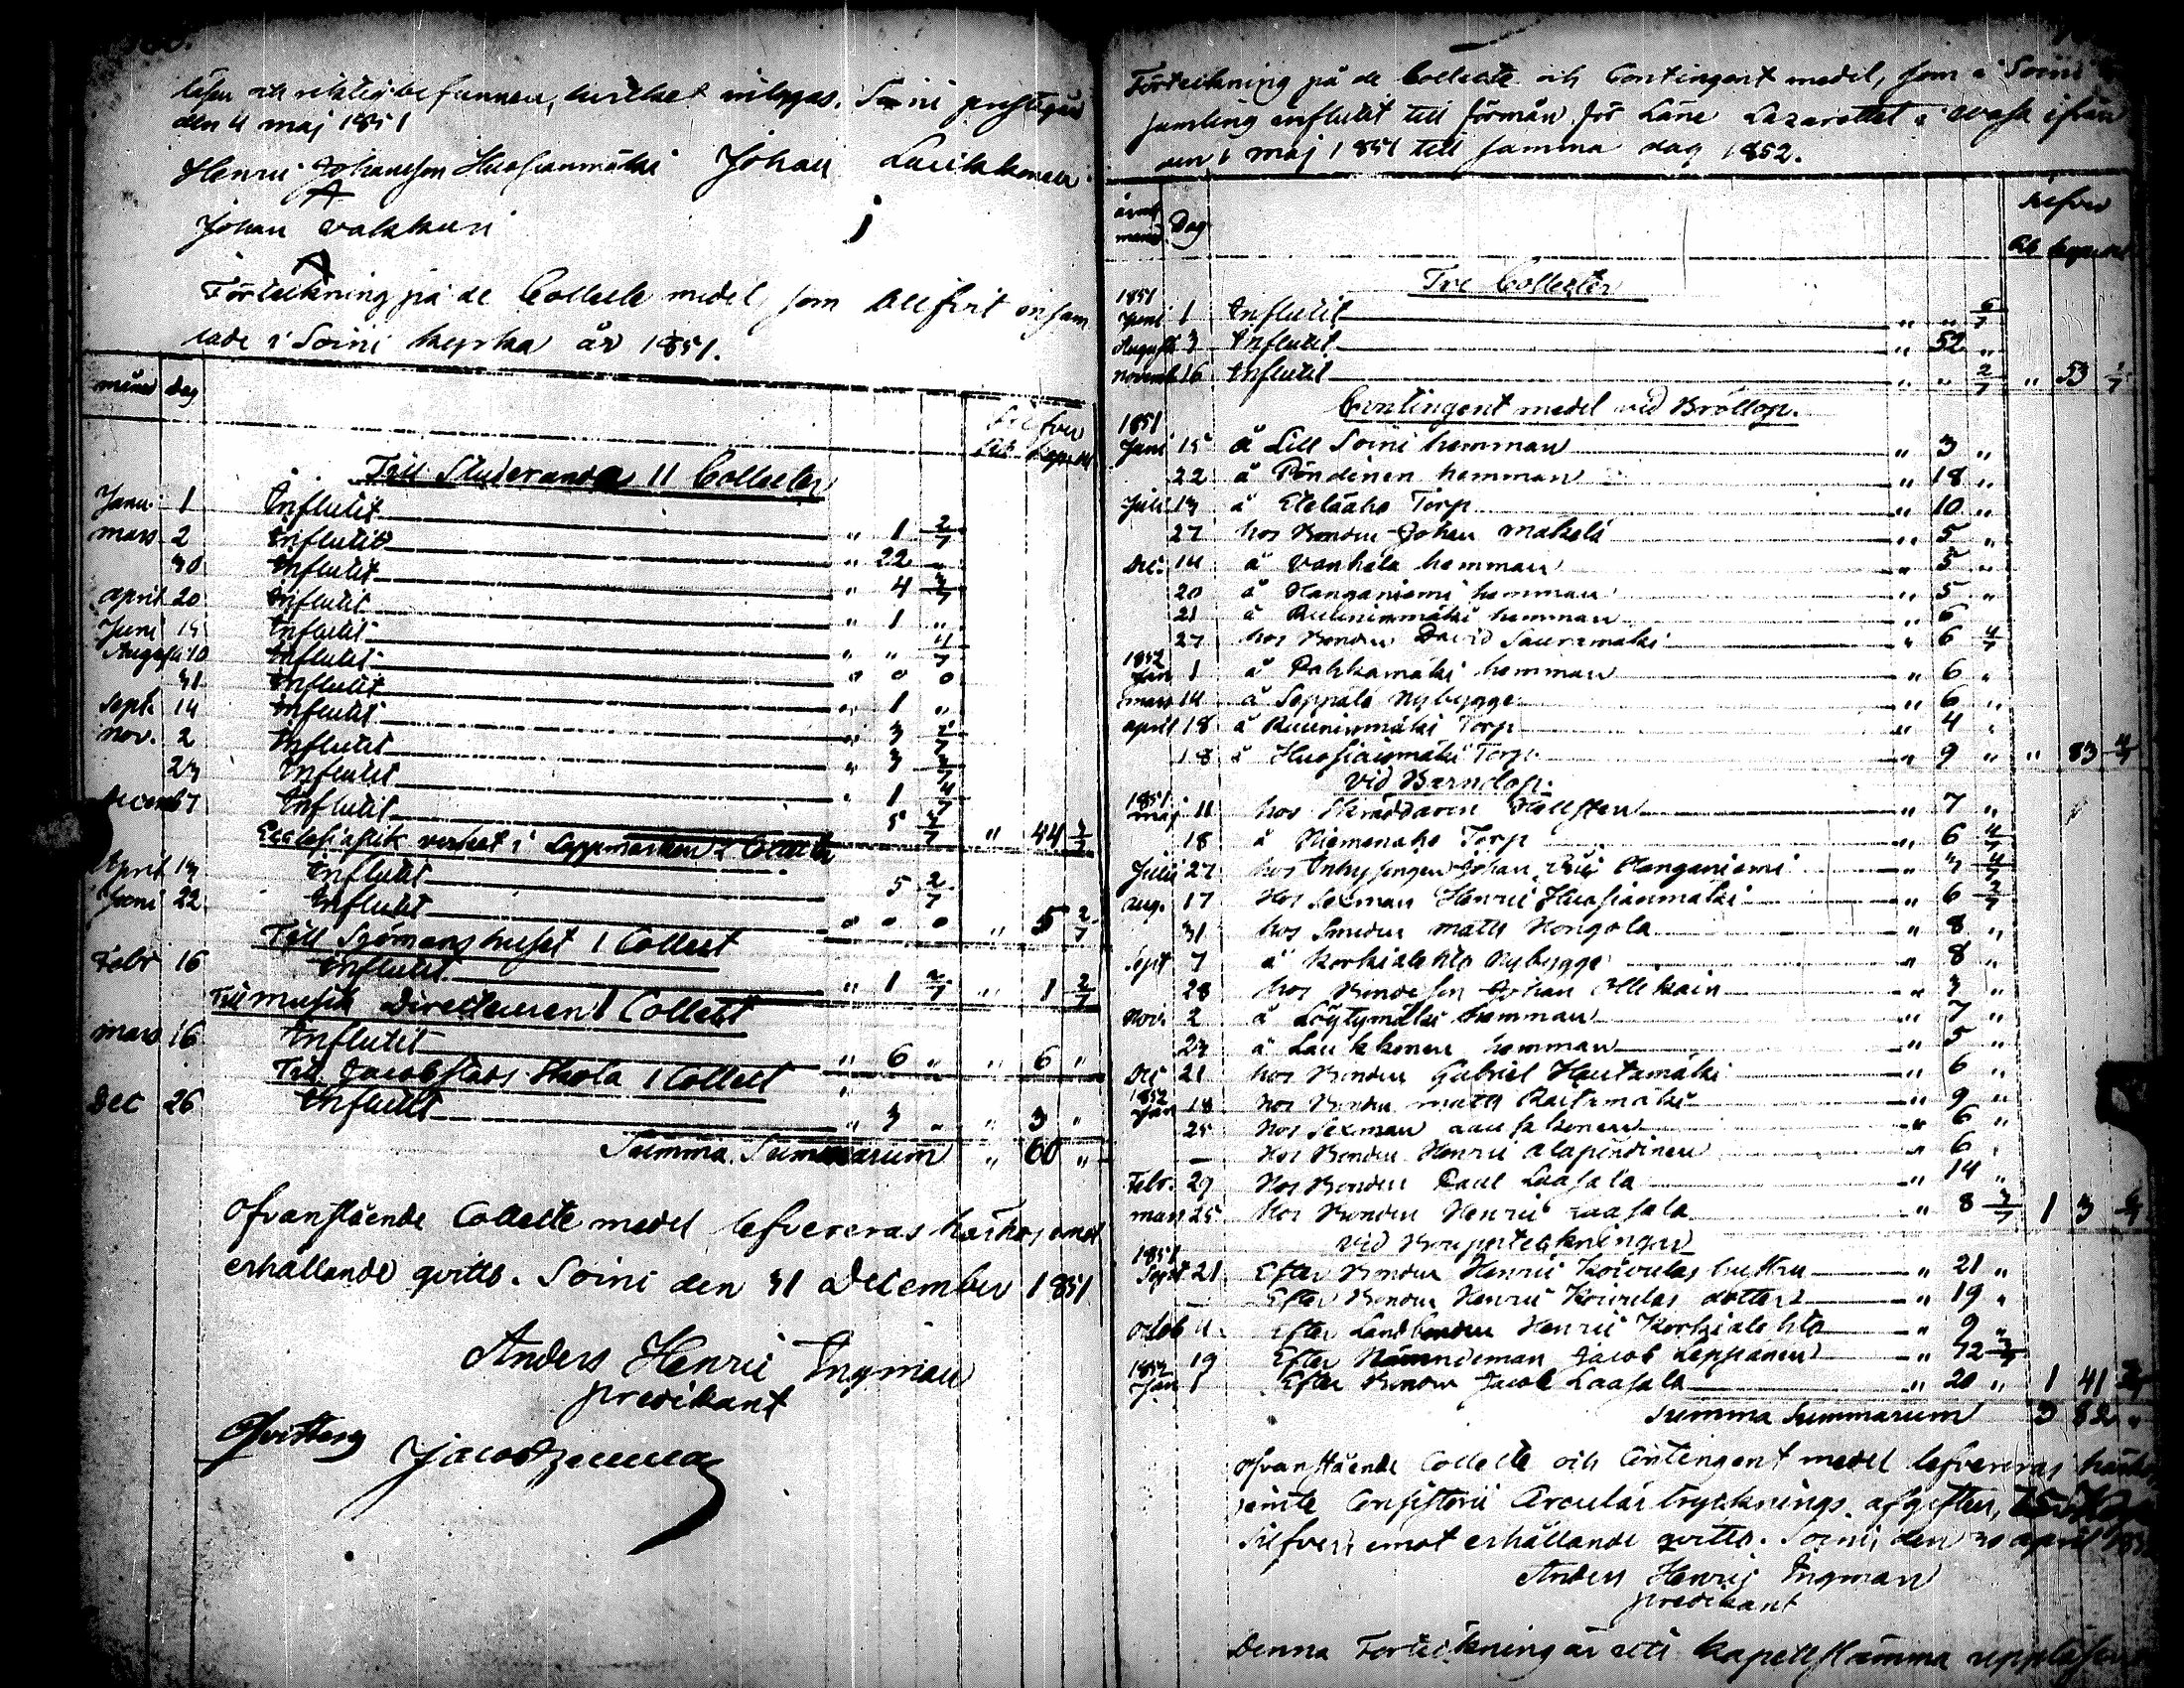 läsen och riktig befunnen, hvilket intygas. Soini prestgård
den 4 maj 1851
Henric Johansson Huosianmäki Johan Laukkonen
Johan Valkkari
Förteckning på de Collecte medel, som blifvit insam
lade i Soini kyrka år 1851.
månad dag
Silfver
Rub. kopek
Till Studerande 11 Collecter
Janu. 1 Influtit " 1 2/7
mars 2 Influtit " 22 "
30 Influtit " 4
april 20 Influtit " 1 "
Juni 15 Influtit " " 4/7
Augusti 10 Influtit 0 0 0
31 Influtit " 1 "
Sept. 14 Influtit " 3
Nov. 2 Influtit " 3
23 Influtit " 1 4/7
Decemb 7 Influtit 5 " 44
Ecclesiastik verket i Lappmarken 2 Collecter
April 13 Influtit 5 2/7
Juni 22 Influtit 0 0 0 " 5 2/7
Till Sjömanshuset 1 Collect
Febr 16 Influtit " 1 2/7 " 1 2/7
Till musik Directeuren 1 Collect
mars 16 Influtit " 6 " " 6 "
Till Jacobstads Skola 1 Collect
Dec 26 Influtit " 3 " " 3 "
Summa Summarum " 60 "
Ofvanstående Collecte medel lefvereras härhos emot
erhållande qvitto. Soini den 31 December 1851
Anders Henric Ingman
predikant
Qvitteras
Förteckning på de Collecte och Contingent medel, som i Soini
samling influtit till förmån för Läne Lazarettet i Wasa ifrån
den 1 maj 1851 till samma dag 1852.
år och månad Dag
Silfver
Rb kopek
Tre Collecter
1851
Juni 1 Influtit " " 6/7
Augusti 3 Influtit " 52 "
novemb 16 Influtit " " 2/7 " 53 1/7
Contingent medel vid Bröllop.
1851
Juni 15 å Lill Soini hemman " 3 "
22 å Pöndinen hemman " 18 "
Juli 13 å Eteläaho Torp " 10 "
27 hos Bonden Johan Mäkelä " 5 "
Dec. 14 å Vanhala hemman " 5 "
20 å Kanganiemi hemman " 5 "
21 å Kuninmäki hemman " 6
27 hos Bonden David Sauramäki " 6 4/7
1852
Jan 1 å Pahkamäki hemman " 6 "
mars 14 å Seppälä Nybygge " 6 "
april 18 å Kuninmäki Torp " 4 "
18 å Huosianmäki Torp " 9 " " 83 4/7
Vid Barndop.
1851
maj 11 hos Skräddaren Hällsten " 7 "
18 å Niemenaho Torp " 6 4/7
Julii 27 hos Inhysingen Johan Kanganiemi " 3 4/7
aug. 17 Hos Sexman Henric Huosianmäki " 6 2/7
31 hos Smeden Matts Kongola " 8 "
Sept 7 å Korkialehto Nybygge " 8 "
28 hos Bondeson Johan Ollikain " 3 "
Nov. 2 å Löytymäki hemman " 7 "
23 å Laukkonen hemman " 5 "
Dec 21 hos Bonden Gabriel Hautamäki " 6 "
1852
Jan 18 hos Bonden Matts Raitamäki " 9 "
25 hos Sexman " 6 "
— Hos Bonden Henric Alapöndinen " 6 "
Febr. 29 Hos Bonden Paul Laasala " 14 "
mars 25 hos Bonden Henric Laasala " 8 1 3 6/7
Vid Bouppteckningar
1851
Sept. 21 Efter Bonden Henric Koivulas hustru " 21 "
— Efter Bonden Henric Koivulas dotter " 19 "
Octob Efter Landbonden Henric Korkialehto " 9 "
19 Efter Nämndeman Jacob Leppänen " 72
1852
Jan 1 Efter Bonden Jacob Laasala " 20 " 1 41
Summa Summarum 3 82 "
Ofvanstående Collecte och Contingent medel lefvereras härhos
jemte Consistorii Circulär trycknings afgiften,
silfver, emot erhållande qvitto. Soini, den 30 april 1852
Anders Henric Ingman
predikant
Denna Förteckning är vid kapellstämma uppläsen